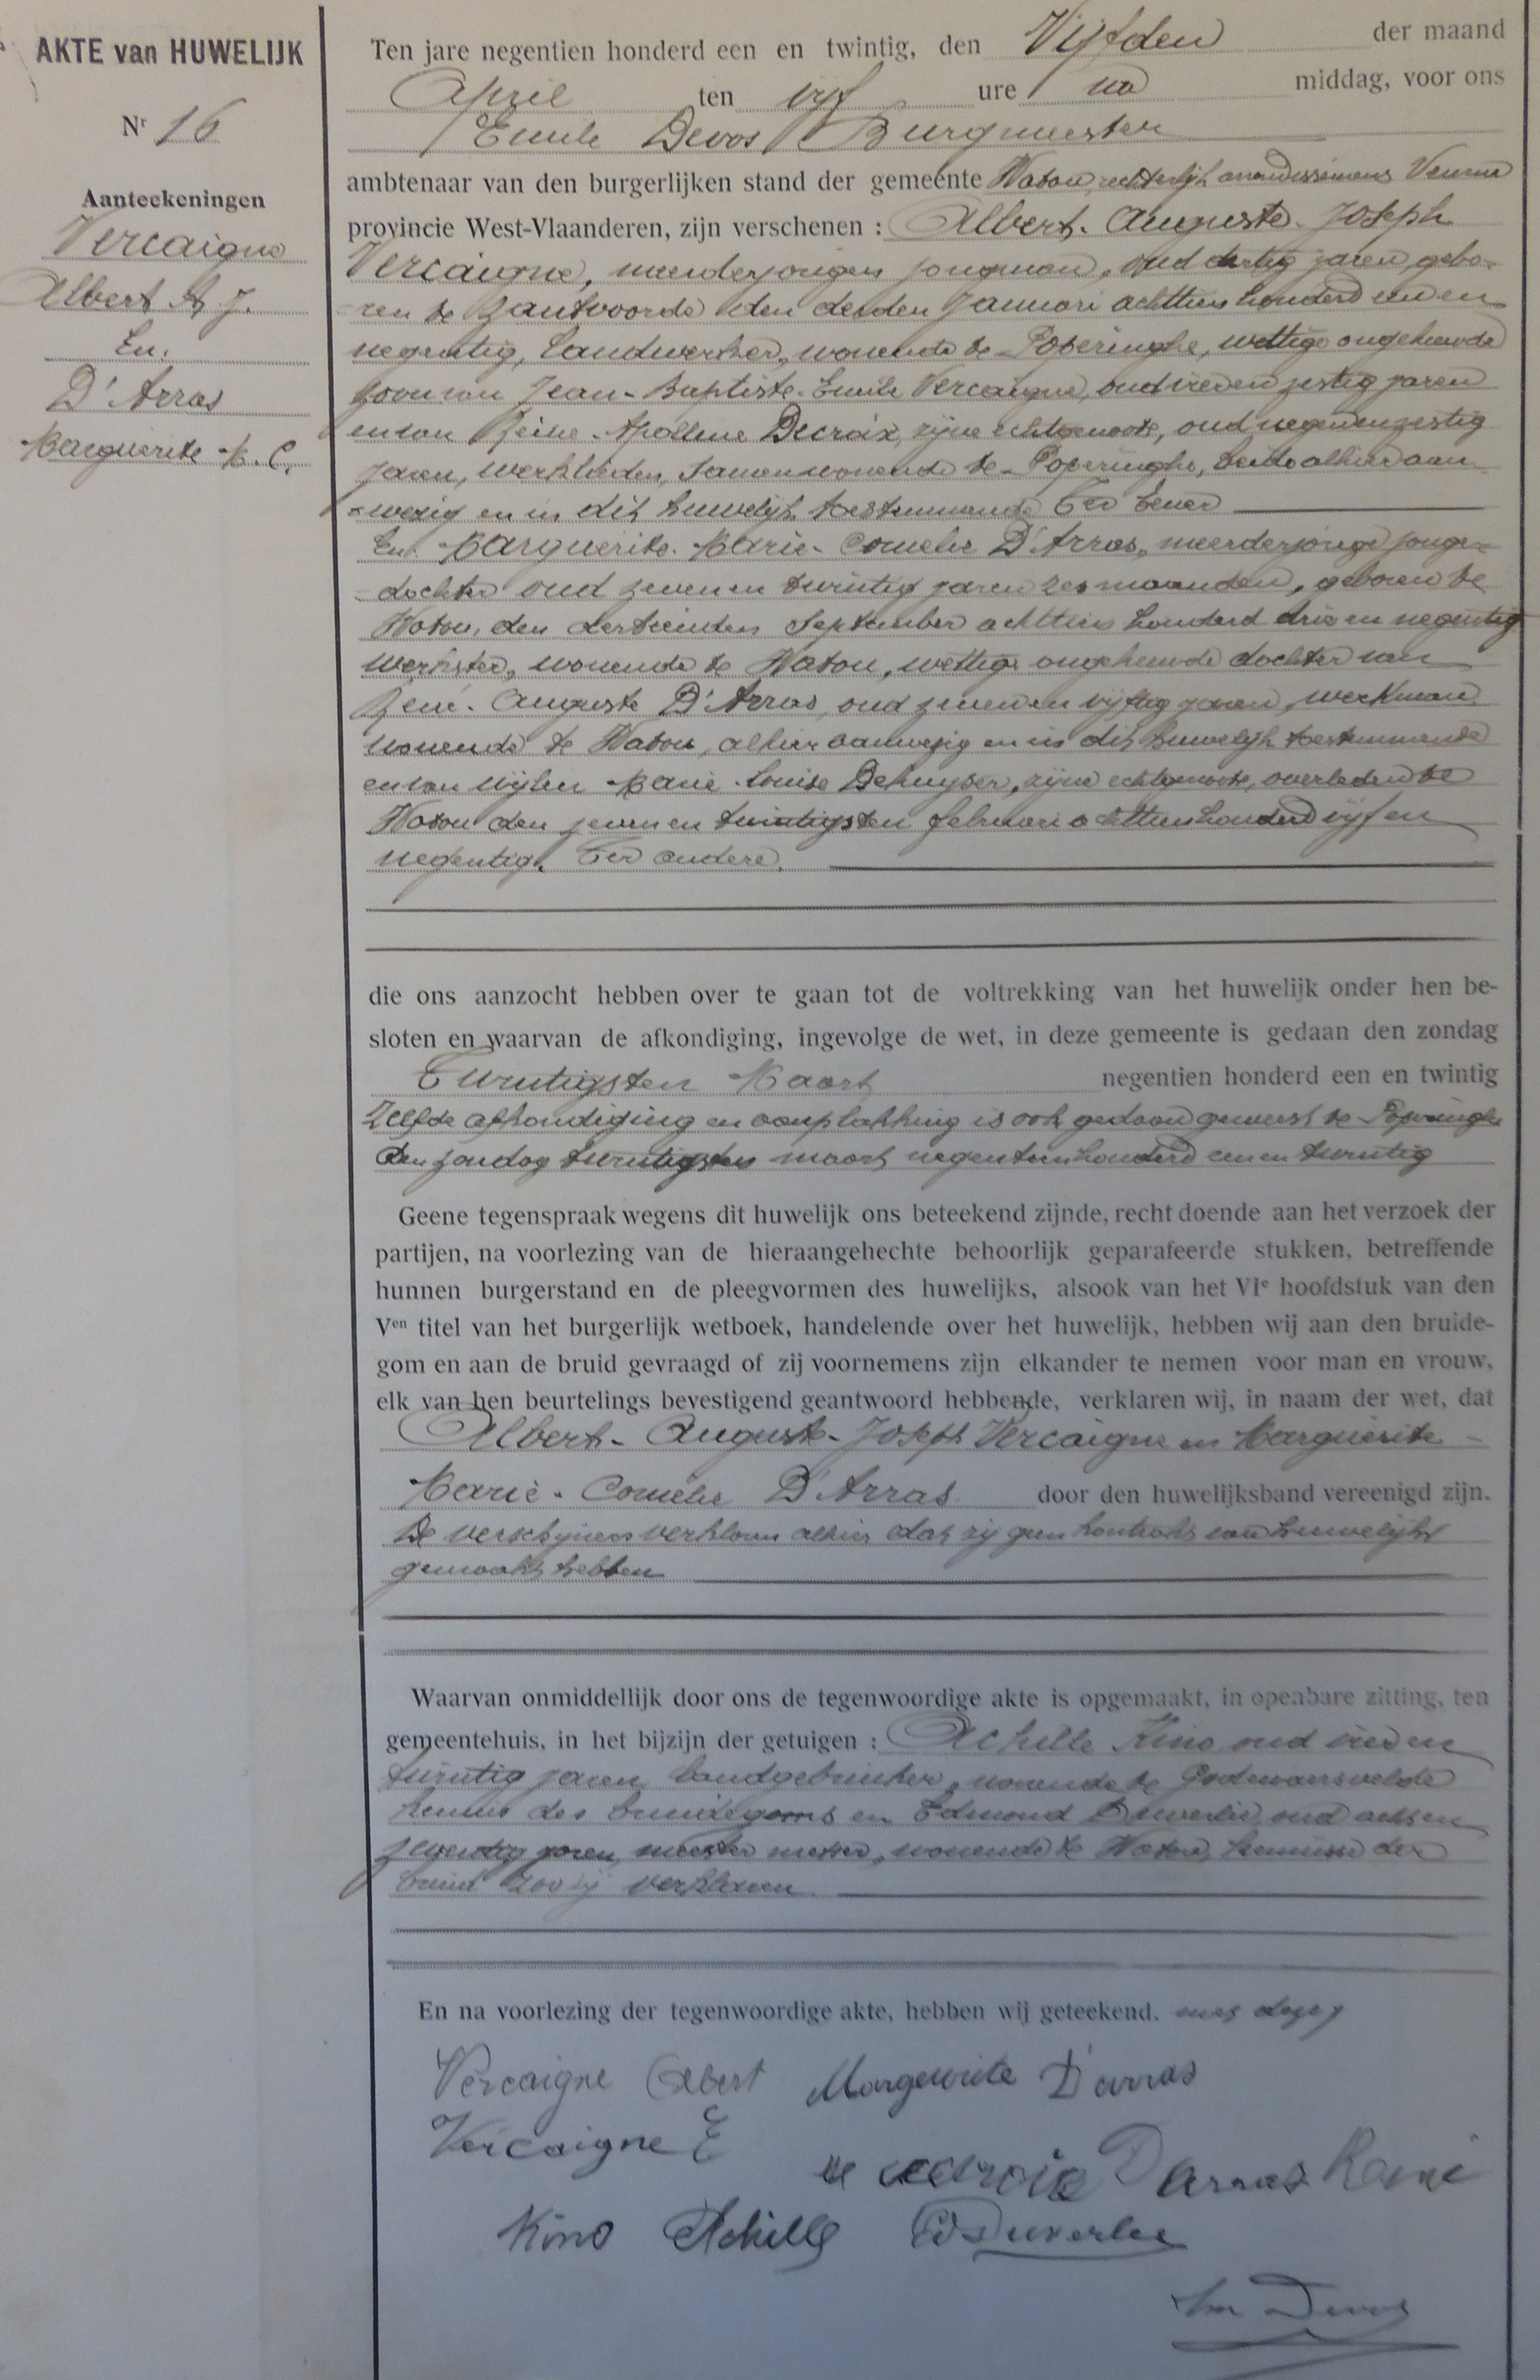 AKTE van HUWELIJK
Nr 16
Aanteekeningen
Vercaigne
Albert A. J.
En.
D'Arras
Marguerite M. C.
Ten jare negentien honderd een en twintig, den Vijfden der maand
April ten vijf ure na middag, voor ons
Emile Devos Burgmeester
ambtenaar van den burgerlijken stand der gemeente Watou, rechterlijk arrondissement Veurne
provincie West-Vlaanderen, zijn verschenen : Albert-Auguste-Joseph
Vercaigne, meerderjarigen jongman, oud dertig jaren, gebo-
ren te Zantvoorde den derden Januari achttien honderd een en
negentig, Landwerker, wonende te Poperinghe, wettige ongehuwde
zoon van Jean-Baptiste-Emile Vercaigne, oud vier en zestig jaren
en van Reine-Apolline Decroix, zijne echtgenoote, oud negen en zestig
jaren, werklieden, samenwonende te Poperinghe, beide alhier aan-
wezig en in dit huwelijk toestemmende Ter eener
En Marguerite-Marie-Cornelie D'Arras, meerderjarige jonge-
dochter oud zeven en twintig jaren zes maanden, geboren te
Watou, den dertienden September achttien honderd drie en negentig
werkster, wonende te Watou, wettige ongehuwde dochter van
René-Auguste D'Arras, oud zeven en vijftig jaren, werkman
wonende te Watou, alhier aanwezig en in dit huwelijk toestemmende
en van wijlen Marie-Louise Dehuyser, zijne echtgenoote, overleden te
Watou den zeven en twintigsten februari achttien honderd vijf en
negentig. Ter andere.
die ons aanzocht hebben over te gaan tot de voltrekking van het huwelijk onder hen be-
sloten en waarvan de afkondiging, ingevolge de wet, in deze gemeente is gedaan den zondag
Twintigsten Maart negentien honderd een en twintig
Zelfde afkondiging en aanplakking is ook gedaan geweest te Poperinghe
den zondag twintigsten maart negentien honderd een en twintig
Geene tegenspraak wegens dit huwelijk ons beteekend zijnde, recht doende aan het verzoek der
partijen, na voorlezing van de hieraangehechte behoorlijk geparafeerde stukken, betreffende
hunnen burgerstand en de pleegvormen des huwelijks, alsook van het VIe hoofdstuk van den
Ven titel van het burgerlijk wetboek, handelende over het huwelijk, hebben wij aan den bruide-
gom en aan de bruid gevraagd of zij voornemens zijn elkander te nemen voor man en vrouw,
elk van hen beurtelings bevestigend geantwoord hebbende, verklaren wij, in naam der wet, dat
Albert-Auguste-Joseph Vercaigne en Marguerite-
Marie-Cornelie D'Arras door den huwelijksband vereenigd zijn.
De verschijners verklaren alhier dat zij geen kontrakt van huwelijk
gemaakt hebben
Waarvan onmiddellijk door ons de tegenwoordige akte is opgemaakt, in openbare zitting, ten
gemeentehuis, in het bijzijn der getuigen : Achille Kino oud vier en
twintig jaren, landgebruiker, wonende te Godewaersvelde
kennis des bruidegoms en Edmond Duverlie, oud acht en
zeventig jaren, meester metser, wonende te Watou, kennisse der
bruid zoo zij verklaren
En na voorlezing der tegenwoordige akte, hebben wij geteekend. met deze,
Vercaigne Albert Margeurite D'arras
Vercaigne E
Darras René
Kino Achille Ed Duverlie
Em Devos